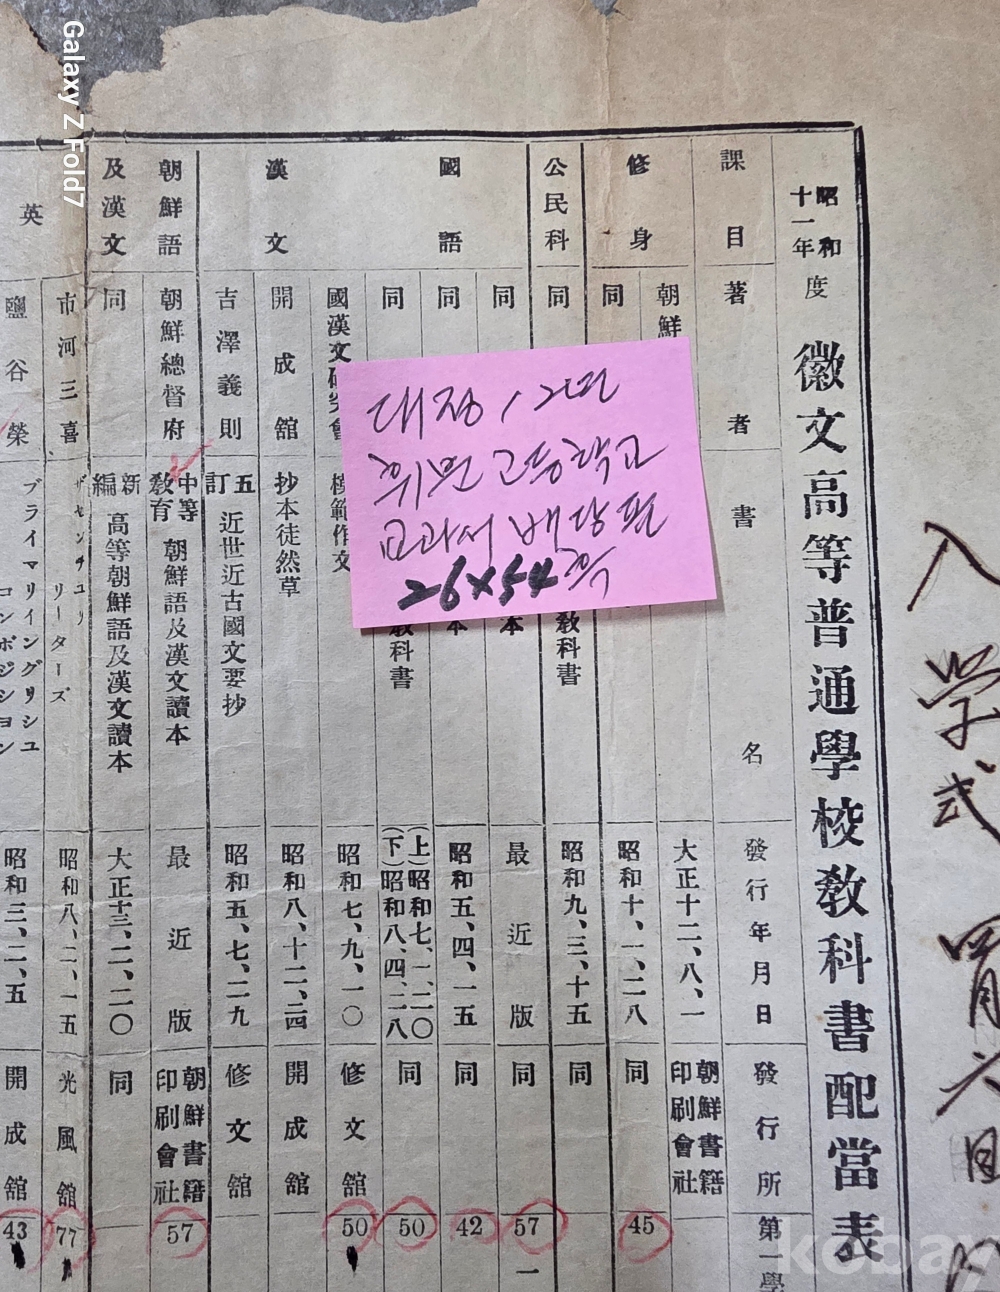 昭和十一年度 徽文高等普通學校教科書配當表
課目 著者 書名 發行年月日 發行所 第一學
修身 朝鮮 大正十二、八、一 朝鮮書籍印刷會社
同 昭和十、一、二八 同 45
公民科 同 教科書 昭和九、三、十五 同
國語 同 本 最近版 同 57 一
同 本 昭和五、四、一五 同 42
同 教科書 (上)昭和七、一、二〇 (下)昭和八、四、二八 同 50
國漢文研究會 模範作文 昭和七、九、一〇 修文館 50
漢文 開成館 抄本徒然草 昭和八、十二、二四 開成館
吉澤義則 五訂 近世近古國文要抄 昭和五、七、二九 修文館
朝鮮語 朝鮮總督府 中等教育 朝鮮語及漢文讀本 最近版 朝鮮書籍印刷會社 57
及漢文 同 新編 高等朝鮮語及漢文讀本 大正十三、二、二〇 同
英 市河三喜 リーターズ 昭和八、二、一五 光風館 77
鹽谷榮 ブライマリイングリシユ コンポジシヨン 昭和三、二、五 開成館 43
대정12년
휘문고등학교
교과서 배당표
26×54
入学式 四月六日
Galaxy Z Fold7
kobay